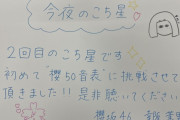 今夜のこち星
2回目のこち星です
初めて"櫻50音表"に挑戦させて
頂きました!! 是非聴いてください
櫻坂46